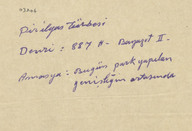 Pirilyas Türbesi
Devri : 887 H - Bayazet II.
Amasya : Bugün park yapılan
genişliğin ortasında